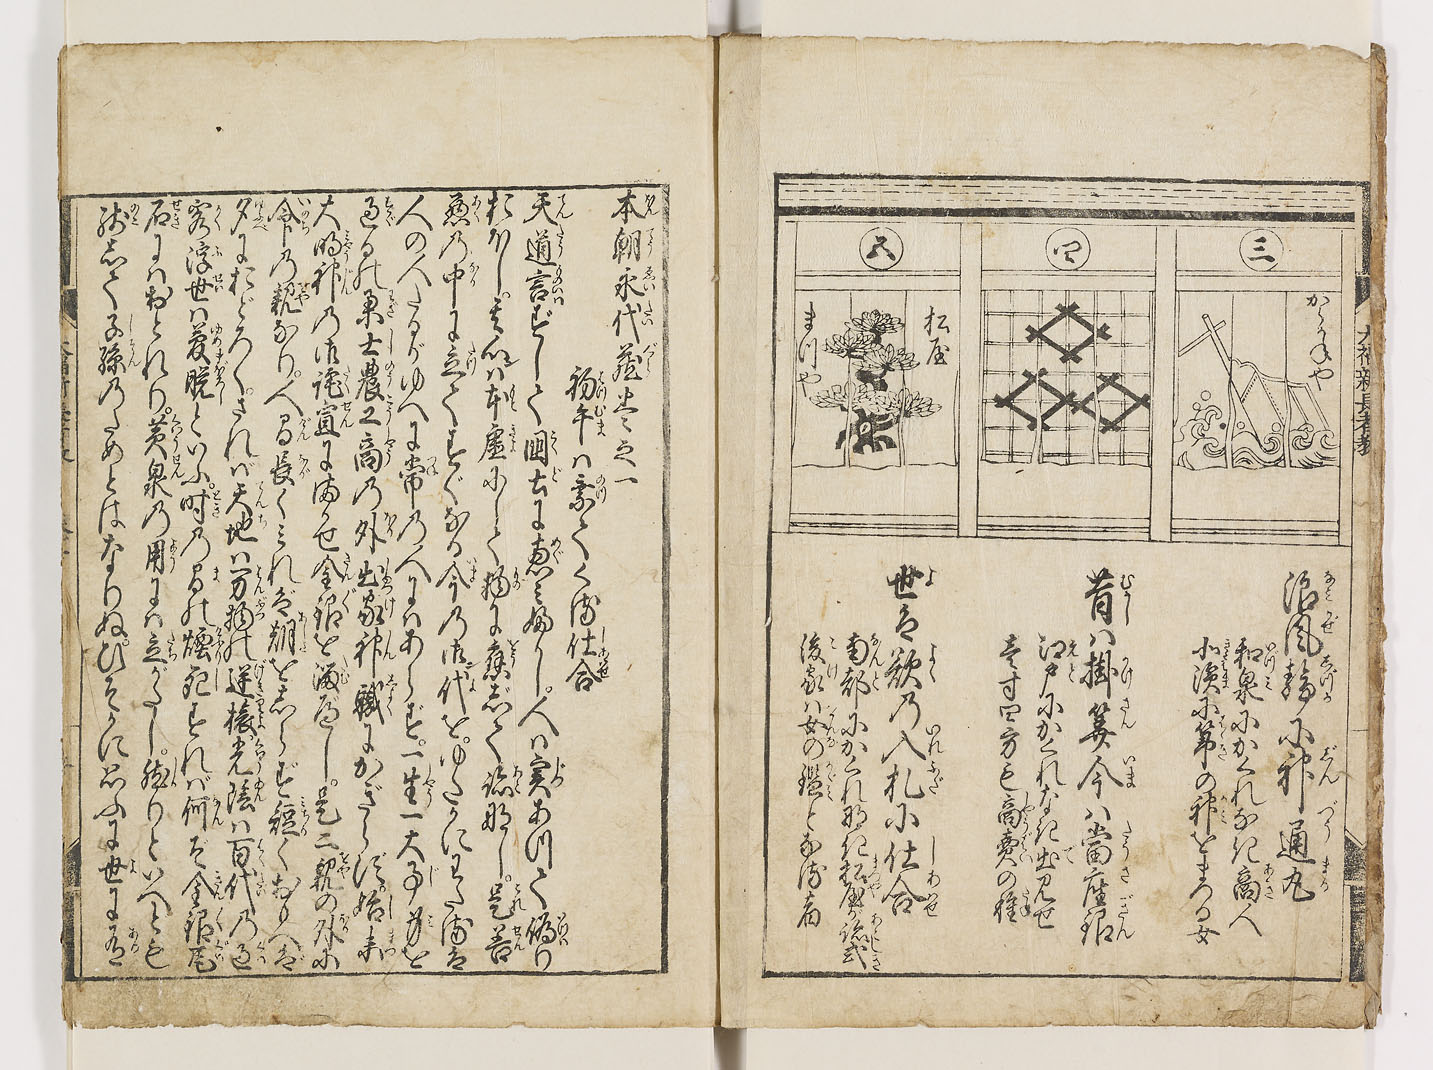 三
からかねや
四
五
松屋
まつや
浪風静に神通丸
和泉にかくれなき商人
北濱に箒の神をまつる女
昔ハ掛算今ハ當座銀
江戸にかくれなき出見せ
壱寸四方も商賣の種
世ハ欲の入札に仕合
南都にかくれなき松屋が跡式
後家ハ女の鑑となる者
大福新長者教
本朝永代蔵巻之一
初午ハ乗てくる仕合
天道言ずして國土に恵みふかし。人ハ実あつて偽り
おほし。其心ハ本虚にして物に應じて跡なし。是善
悪の中に立てすぐなる今の御代をゆたかにわたるは
人の人たるがゆへに常の人にハあらず。一生一大事身を
過るの業士農工商の外出家神職にかぎらず。始末
大明神の御託宣にまかせ金銀を溜べし。是二親の外に
命の親なり。人間長くみれば朝をしらず短くおもへば
夕におどろく。されば天地ハ万物の逆旅光陰ハ百代の過
客浮世ハ夢幻といふ。時の間の煙死すれば何ぞ金銀瓦
石にハおとれり。黄泉の用にハ立がたし。然りといへども
残して子孫のためとはなりぬ。ひそかに思ふに世に有